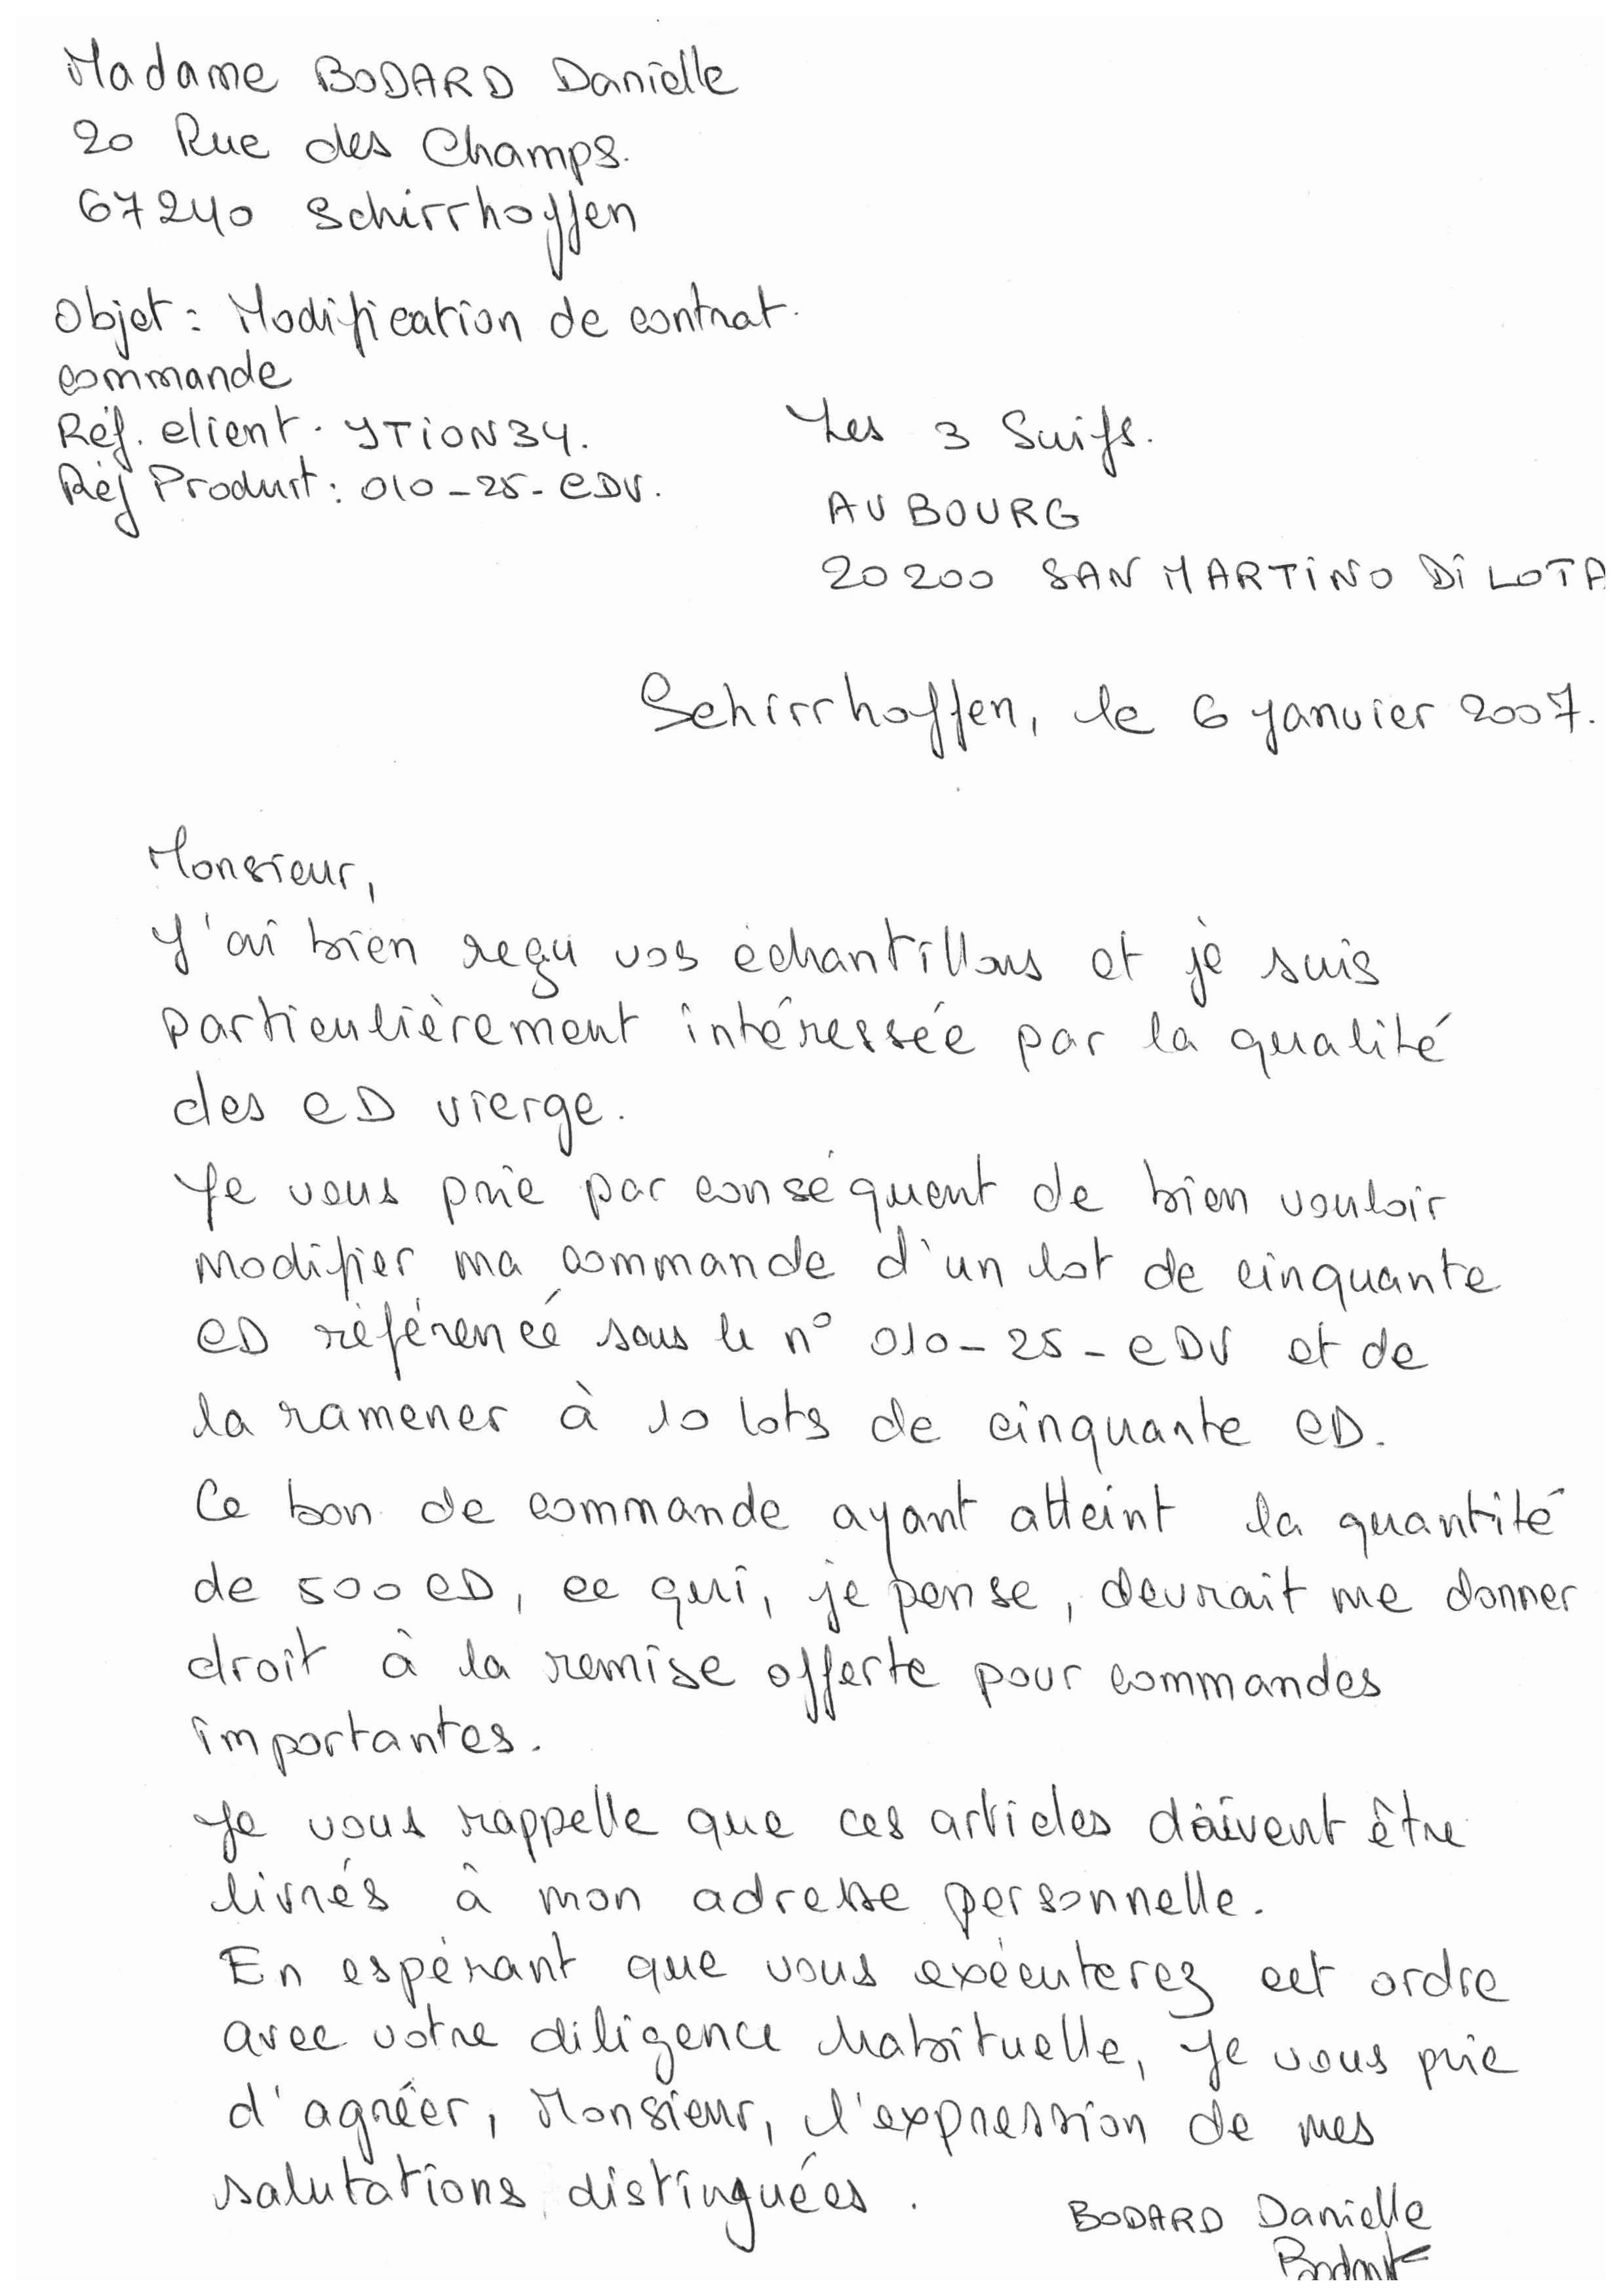 Madame BODARD Danielle
20 Rue des Champs.
67240 Schirrhoffen
Objet : Modification de contrat.
commande
Réf. client. YTION34.
Réf Produit : 010-25-CDV.
Les 3 Suifs.
AU BOURG
20200 SAN MARTINO DI LOTA
Schirrhoffen, le 6 janvier 2007.
Monsieur,
J'ai bien reçu vos échantillons et je suis
particulièrement intéressée par la qualité
des CD vierge.
Je vous prie par conséquent de bien vouloir
modifier ma commande d'un lot de cinquante
CD référencé sous le n° 010-25-CDV et de
la ramener à 10 lots de cinquante CD.
Ce bon de commande ayant atteint la quantité
de 500 CD, ce qui, je pense, devrait me donner
droit à la remise offerte pour commandes
importantes.
Je vous rappelle que ces articles doivent être
livrés à mon adresse personnelle.
En espérant que vous exécuterez cet ordre
avec votre diligence habituelle, je vous prie
d'agréer, Monsieur, l'expression de mes
salutations distinguées.
BODARD Danielle